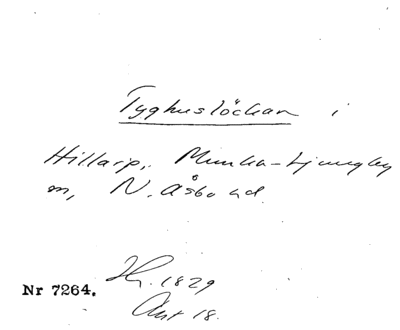 Tyghuslöckan i
Hillarp, Munka-Ljungby
sn, N. Åsbo hd.
1829
Nr 7264.
Akt 18.